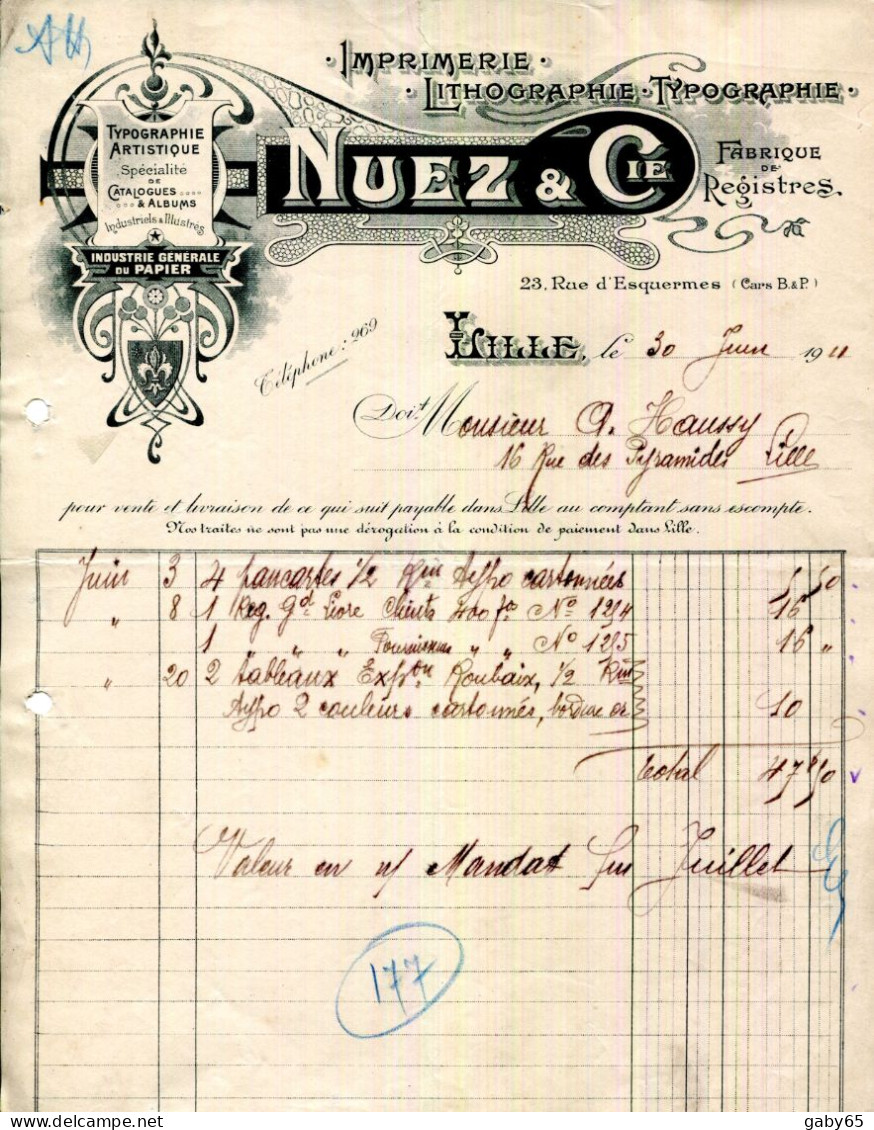 Ath
IMPRIMERIE
LITHOGRAPHIE · TYPOGRAPHIE
NUEZ & CIE
FABRIQUE
DE
REGISTRES.
TYPOGRAPHIE
ARTISTIQUE
Spécialité
DE
CATALOGUES
& ALBUMS
Industriels & Illustrés
INDUSTRIE GÉNÉRALE
DU PAPIER
23, Rue d'Esquermes (Cars B.&P.)
Téléphone : 269
LILLE, le 30 Juin 1911
Doit Monsieur A. Haussy
16 Rue des Pyramides Lille
pour vente et livraison de ce qui suit payable dans Lille au comptant sans escompte.
Nos traites ne sont pas une dérogation à la condition de paiement dans Lille.
Juin 3 4 pancartes 1/2 typo cartonnées 5,50
" 8 1 Reg. Gd Livre Clients 400 fos No 1254 16
1 " " " " " No 1255 16 "
" 20 2 tableaux Expon Roubaix, 1/2
typo 2 couleurs cartonnés, bordure or 10
Total 47f50
Valeur en n/ Mandat fin Juillet
177
gaby65